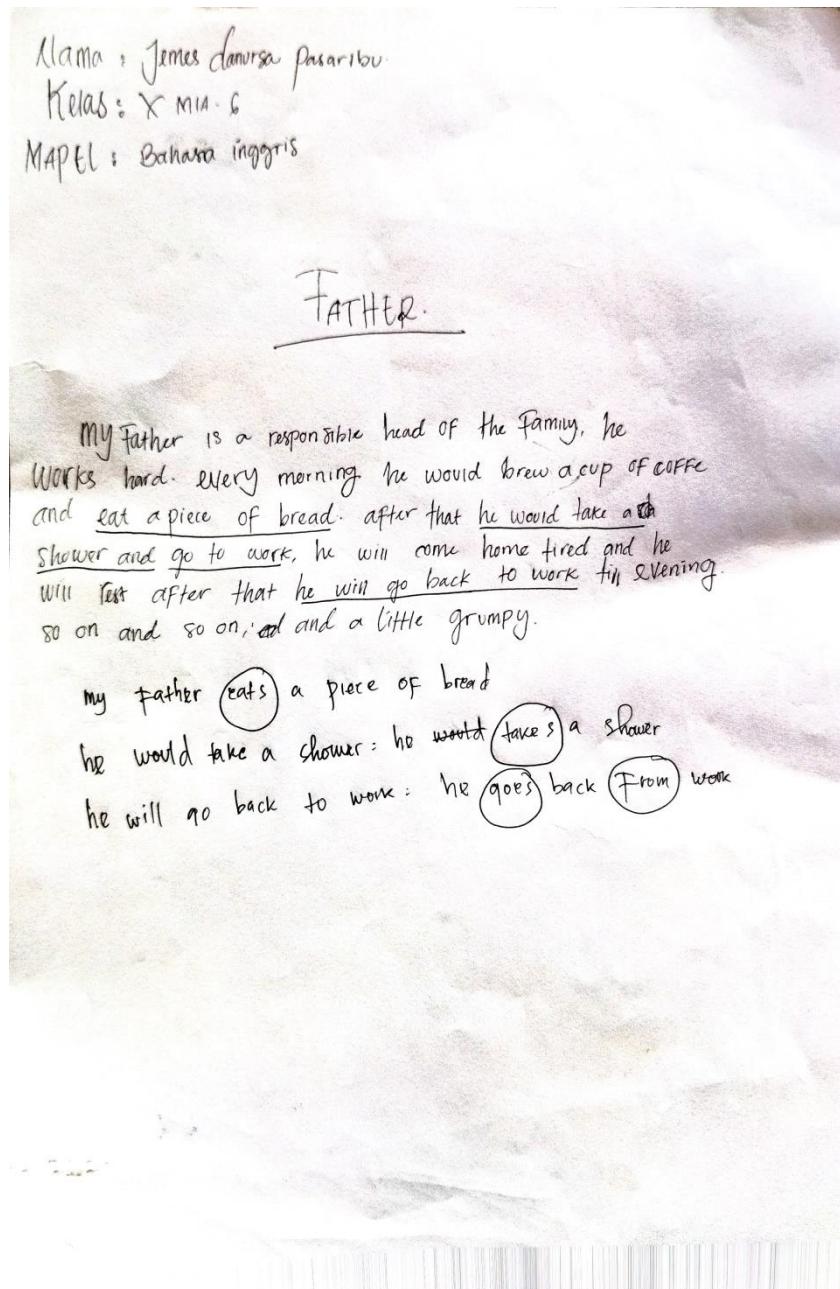 Nama : Jemes danursa pasaribu.
Kelas : X MIA. 6
MAPEL : Bahasa inggris
FATHER.
my Father is a responsible head of the Family, he
works hard. every morning he would brew a cup of coffe
and eat a piece of bread. after that he would take a
shower and go to work, he will come home tired and he
will rest after that he will go back to work till evening.
so on and so on, and a little grumpy.
my Father eats a piece of bread
he would take a shower : he would takes a shower
he will go back to work : he goes back From work